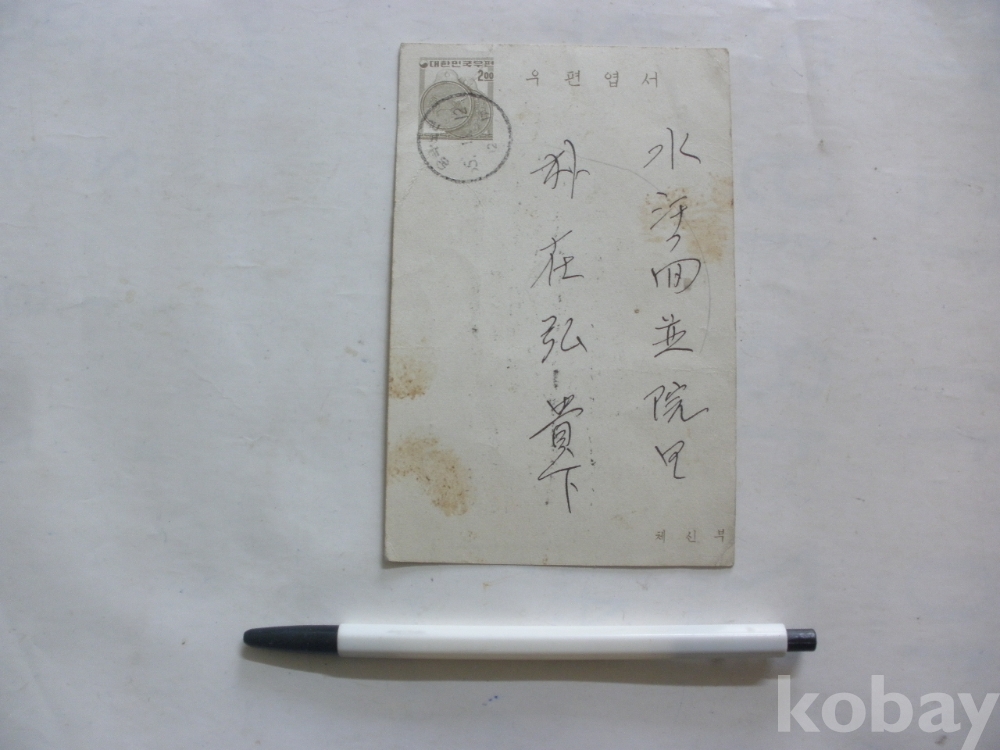 대한민국우편
2.00
우편엽서
水 面 並 院 里
在 弘 貴下
체신부
kobay